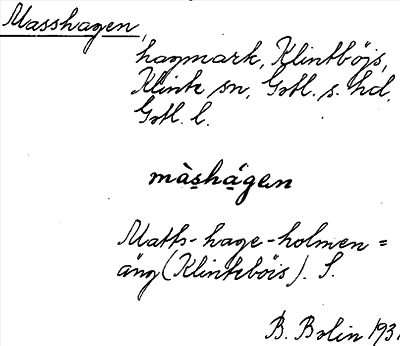 Masshagen,
hagmark, Klintböjs,
Klinte sn, Gotl. s. hd,
Gotl. l.
màs̱há̱gen
Matts-hage-holmen =
äng (Klinteböis). S.
B. Bolin 1931